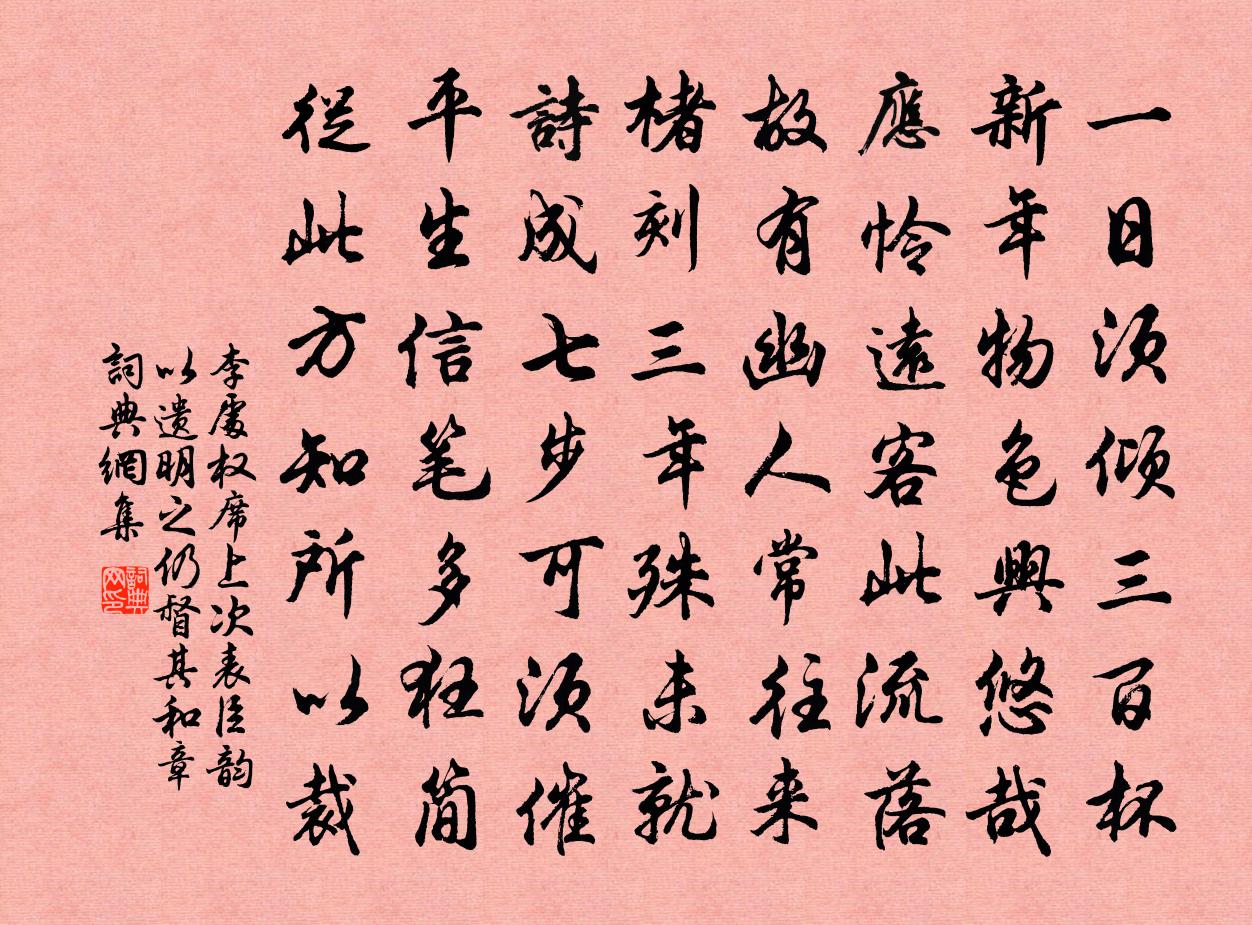 一日須傾三百杯
新年物色興悠哉
應怜遠客此流落
故有幽人常往来
楮刻三年殊未就
詩成七步可須催
平生信笔多狂简
從此方知所以裁
李處权席上次表臣韵
以遗明之仍督其和章
詞典網集
詞典网印